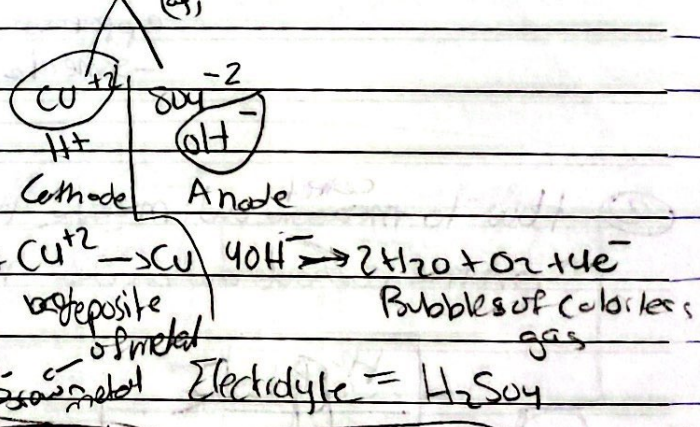 (aq)
Cu+2 SO4-2
H+ OH-
Cathode Anode
+ Cu+2 → Cu 4OH- → 2H2O + O2 + 4e-
deposite Bubbles of colorless
of metal gas
metal Electrolyte = H2SO4